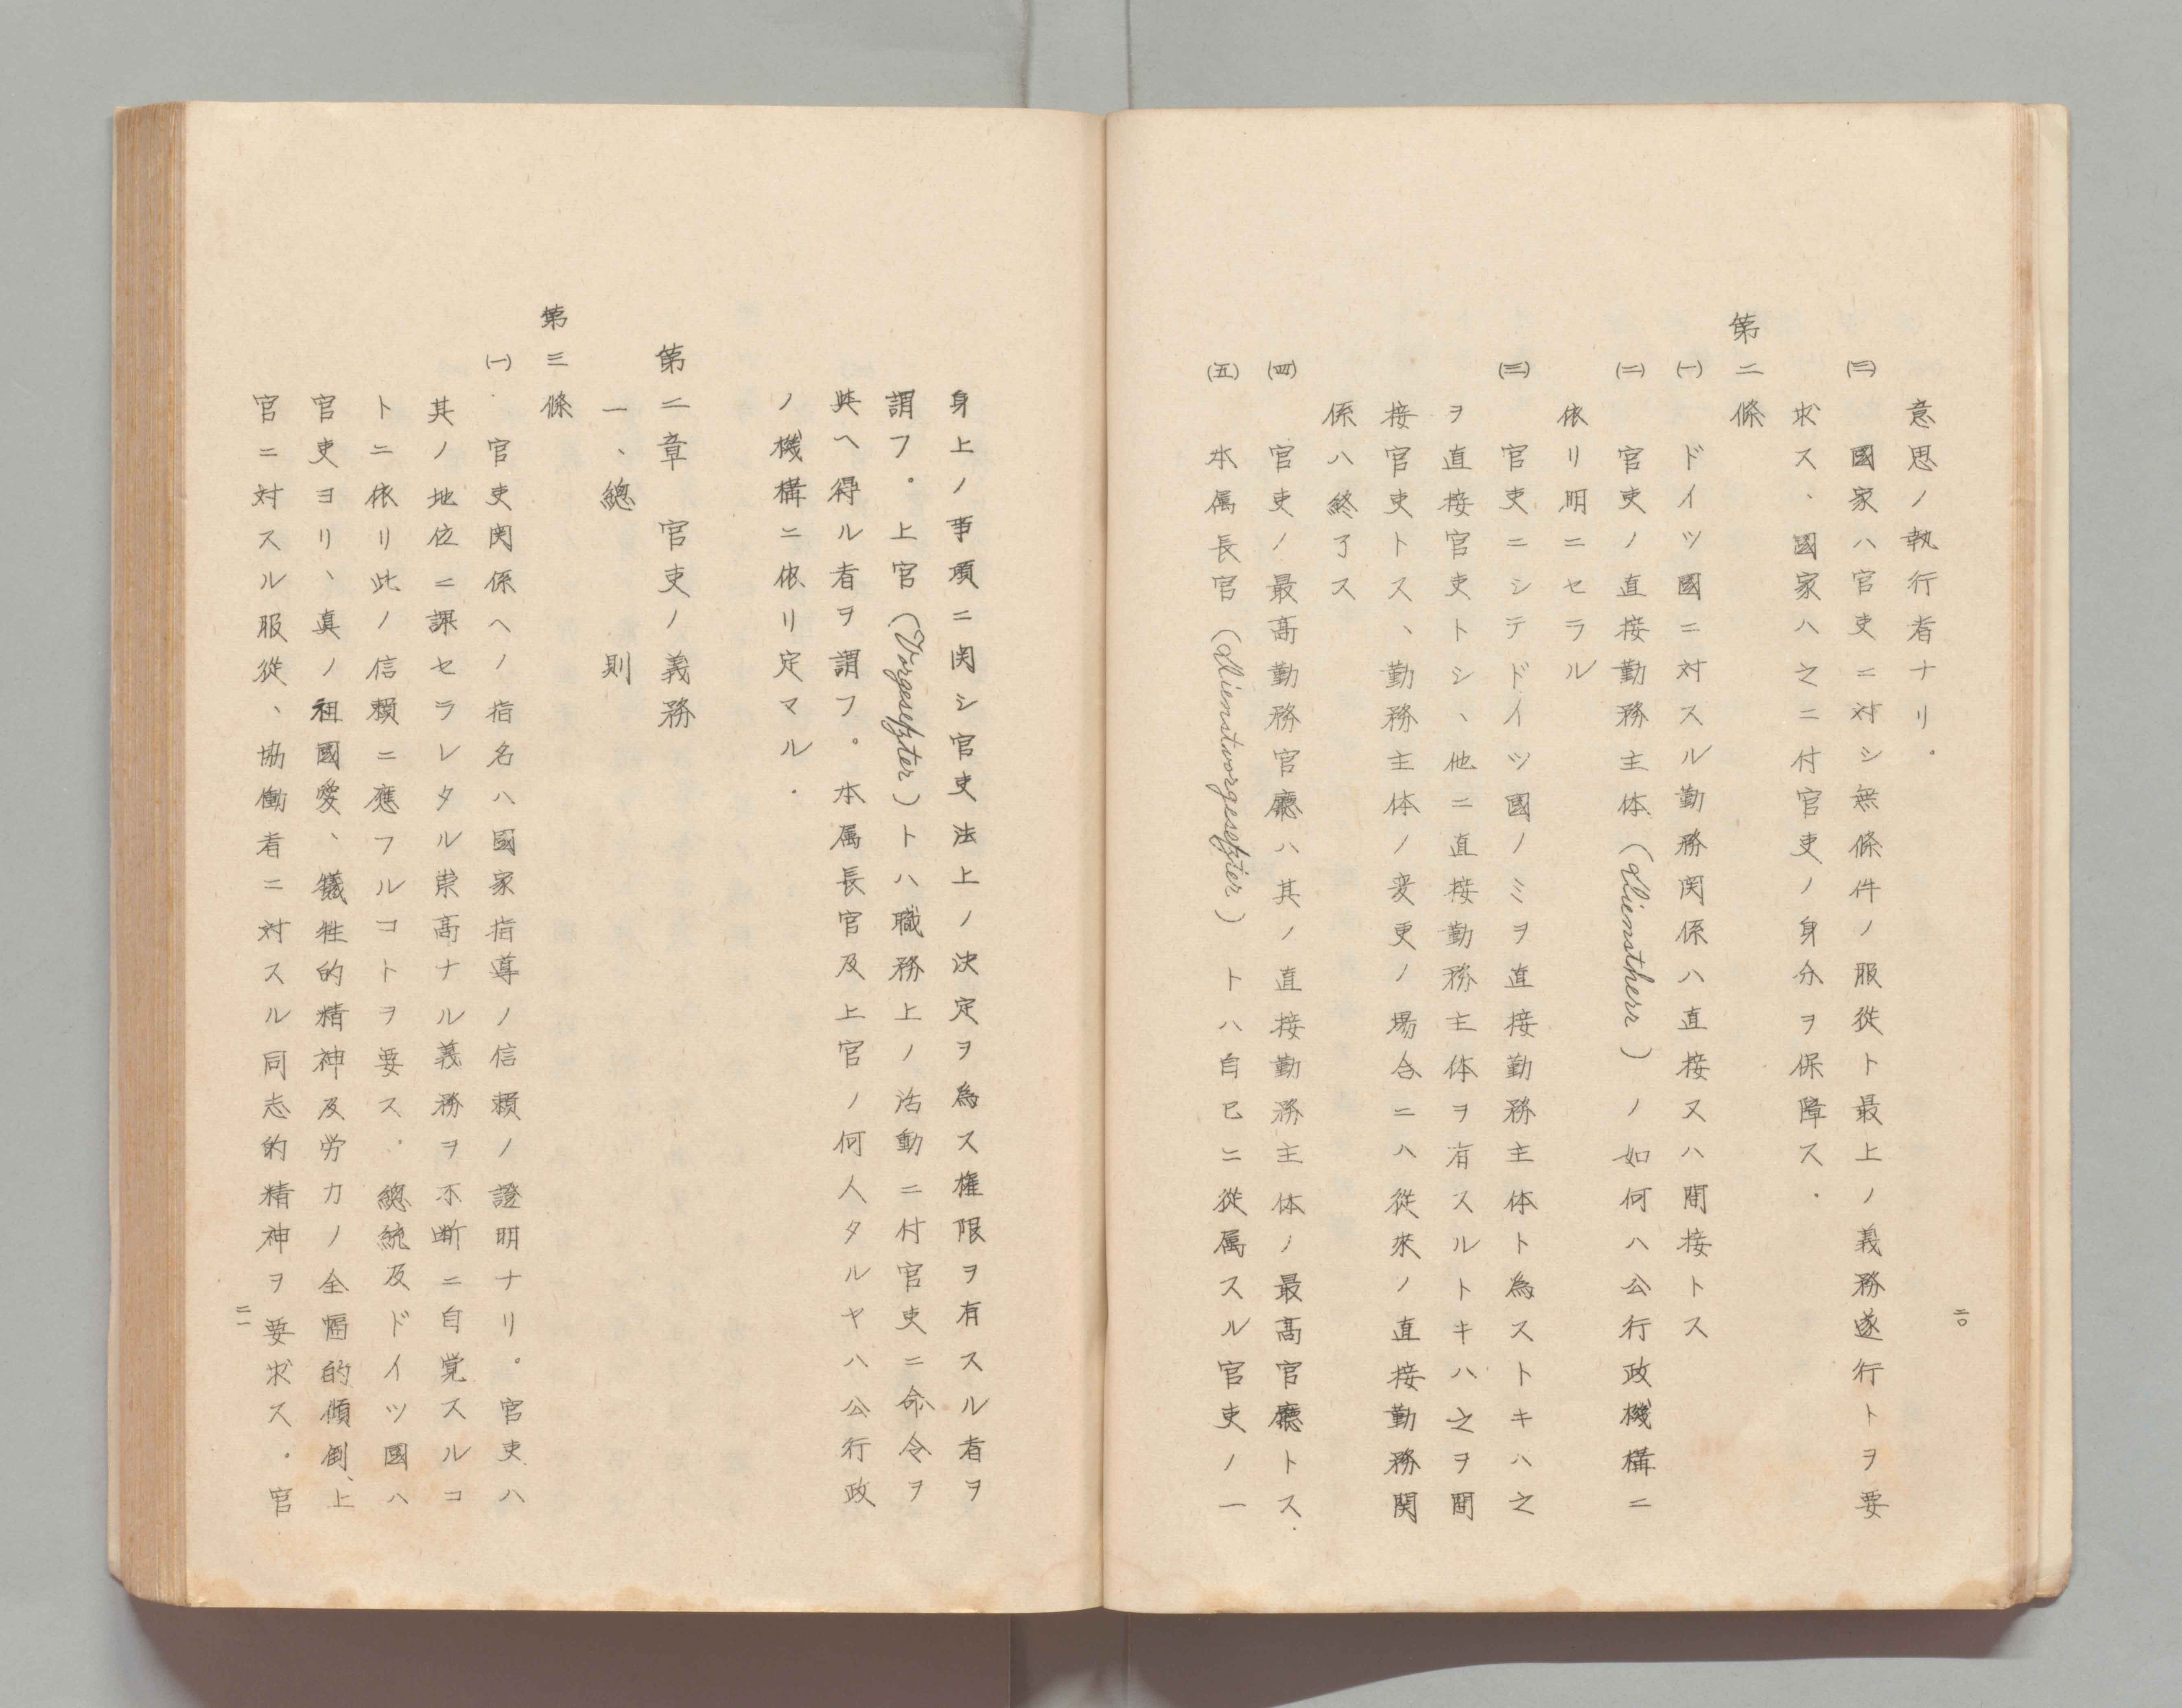 二〇
意思ノ執行者ナリ。
㈢ 國家ハ官吏ニ対シ無條件ノ服従ト最上ノ義務遂行トヲ要
求ス、國家ハ之ニ付官吏ノ身分ヲ保障ス．
第二條
㈠ ドイツ國ニ対スル勤務関係ハ直接又ハ間接トス
㈡ 官吏ノ直接勤務主体（Dienstherr）ノ如何ハ公行政機構ニ
依リ明ニセラル
㈢ 官吏ニシテドイツ國ノミヲ直接勤務主体ト為ストキハ之
ヲ直接官吏トシ、他ニ直接勤務主体ヲ有スルトキハ之ヲ間
接官吏トス、勤務主体ノ変更ノ場合ニハ從來ノ直接勤務関
係ハ終了ス
㈣ 官吏ノ最高勤務官廳ハ其ノ直接勤務主体ノ最高官廳トス．
㈤ 本属長官（Dienstvorgesetzter）トハ自己ニ從属スル官吏ノ一
身上ノ事項ニ関シ官吏法上ノ決定ヲ為ス権限ヲ有スル者ヲ
謂フ。上官（Vorgesetzter）トハ職務上ノ活動ニ付官吏ニ命令ヲ
與ヘ得ル者ヲ謂フ。本属長官及上官ノ何人タルヤハ公行政
ノ機構ニ依リ定マル．
第二章 官吏ノ義務
一、總 則
第三條
㈠．官吏関係ヘノ指名ハ國家指導ノ信頼ノ證明ナリ。官吏ハ
其ノ地位ニ課セラレタル崇高ナル義務ヲ不断ニ自覚スルコ
トニ依リ此ノ信頼ニ應フルコトヲ要ス．總統及ドイツ國ハ
官吏ヨリ、真ノ祖國愛、犠牲的精神及労力ノ全幅的傾倒、上
官ニ対スル服從、協働者ニ対スル同志的精神ヲ要求ス．官
二一